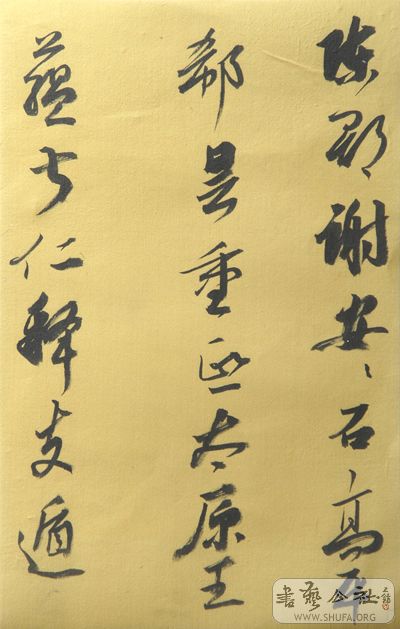 陳郡謝安〻石高平
郗曇重熙太原王
蘊字仁釋支遁
書藝公社
WWW.SHUFA.ORG